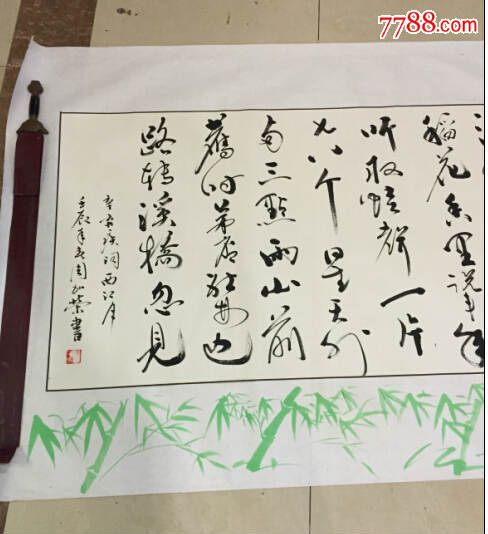 7788.com
稻花香里说丰年
听取蛙聲一片
七八个星天外
两三點雨山前
舊时茅店社林边
路转溪橋忽見
辛弃疾词西江月
壬辰年 周 荣書